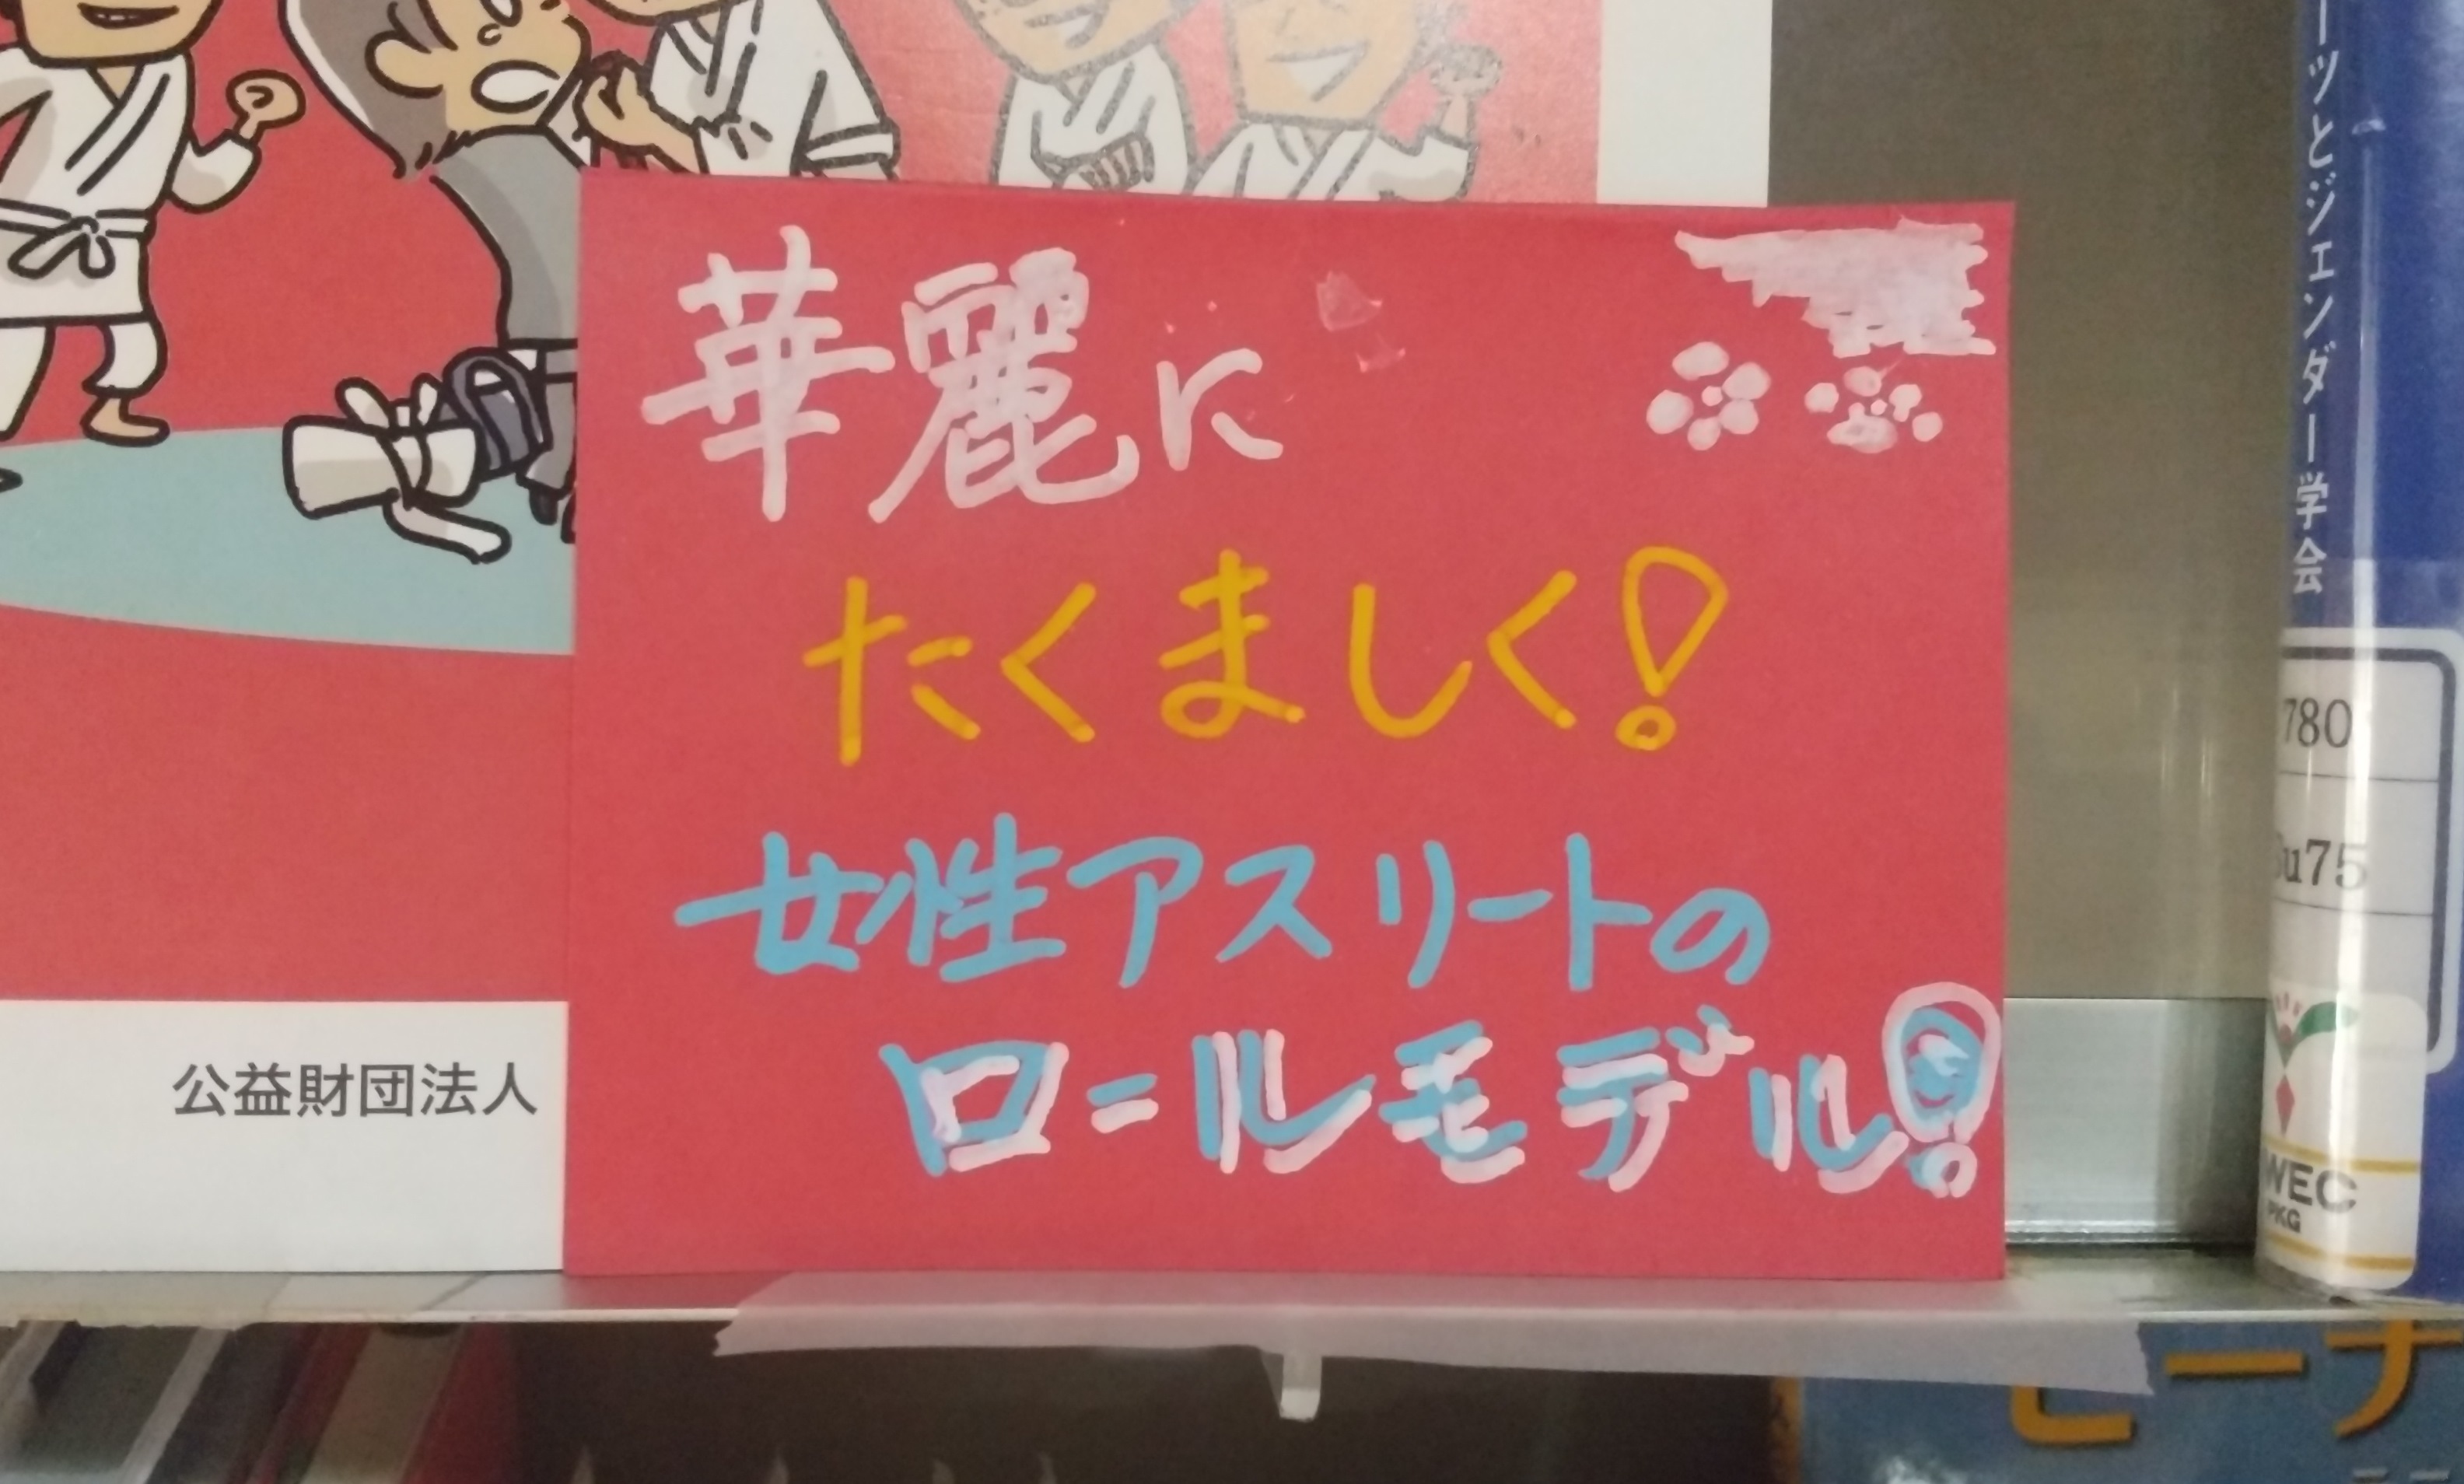 華麗に
たくましく!
女性アスリートの
ロールモデル!
公益財団法人
ーツとジェンダー学会
780
u75
WEC
PKG